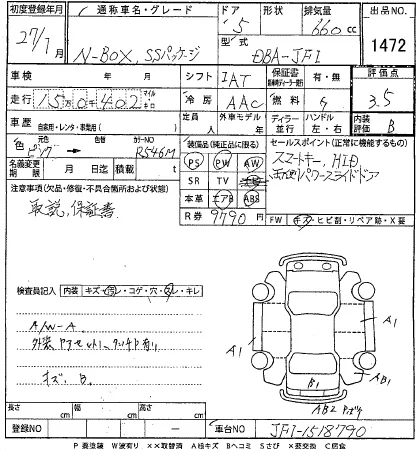 初度登録年月 通称車名・グレード ドア 形状 排気量 出品NO.
27/7月 N-BOX, SSパッケージ 5 660cc 1472
型式 DBA-JF1
車検 年 月 シフト IAT 保証書 有・無 評価点
走行 マイル キロ 冷房 AAC 燃料 3.5
車歴 自家用・レンタ・事業用( ) 定員 人 外車モデル 年 ディーラー 並行 ハンドル 左・右 内装評価 B
色 元色 ピンク → カラーNO R546M 装備品(純正品に限る) セールスポイント(正常に機能するもの)
PS PW AW スマートキー, HID
名義変更期限 月 日迄 積載 t SR TV 左側パワースライドドア
注意事項(欠品・修復・不具合箇所および状態) 本革 エアB ABS
取説, 保証書 R券 9790円 FW キズ・ヒビ割・リペア跡・X要
検査員記入 内装 キズ・汚レ・コゲ・穴・スレ・キレ
A/W-A
キズ. B.
A1
A1
B1
AB1
AB2
長さ cm 幅 cm 高さ cm
登録NO — 車台NO JF1-1518790
P 要塗装 W波有り ××取替済 A線キズ Bヘコミ Sさび ×要交換 C腐食